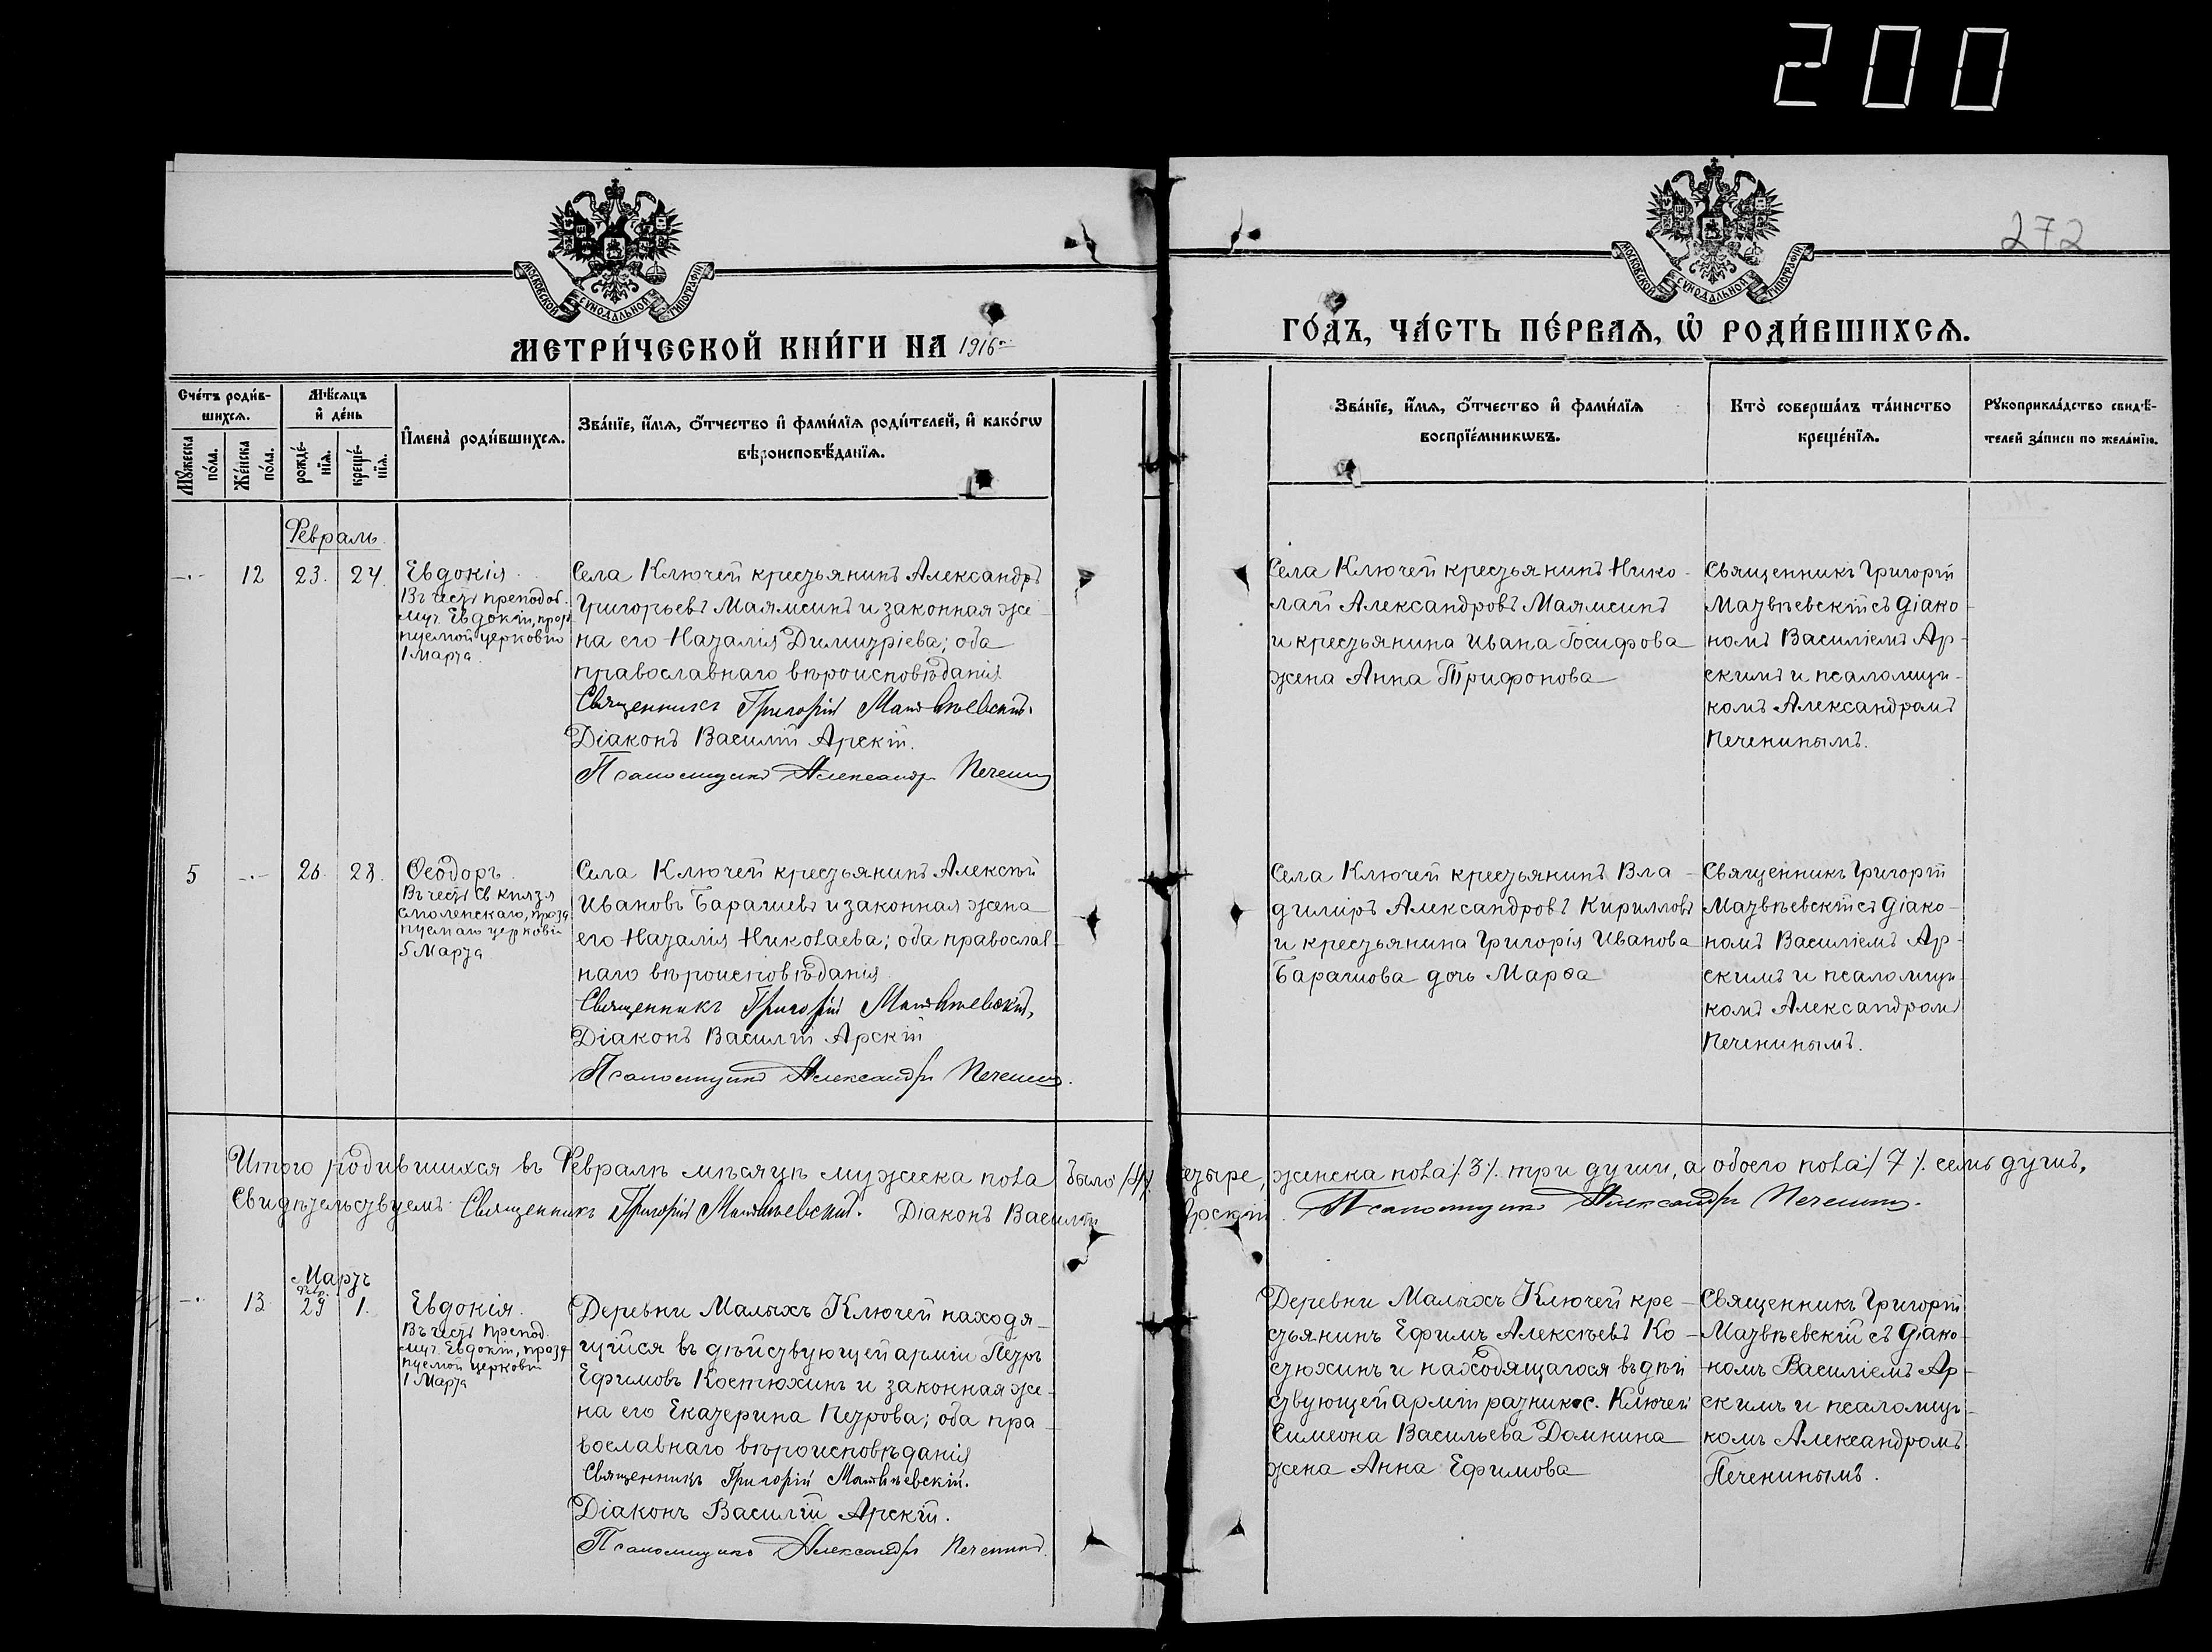 200
272
МОСКОВСКОЙ СѴНОДАЛЬНОЙ ТИПОГРАФІИ
МОСКОВСКОЙ СѴНОДАЛЬНОЙ ТИПОГРАФІИ
МЕТРИ́ЧЕСКОЙ КНИ́ГИ НА 1916 ГО́ДЪ, ЧА́СТЬ ПЕ́РВАЯ, Ѡ҆ РОДИ́ВШИХСЯ.
Сче́тъ роди́в-
шихся.
Мꙋжеска по́ла.
Же́нска по́ла.
Мѣ́сяцъ
и҆ де́нь
рожде́-
нїя.
креще́-
нїя.
И҆мена̀ роди́вшихся.
Зва́нїе, и҆́мя, ѻ҆́тчество и҆ фами́лїя роди́телей, и҆ како́гѡ
вѣроисповѣ́данїя.
Зва́нїе, и҆́мя, ѻ҆́тчество и҆ фами́лїя
воспрїе́мникѡвъ.
Кто̀ соверша́лъ та́инство
креще́нїя.
Рꙋкоприкла́дство свидѣ́-
телей за́писи по жела́нїю.
Февраль
—·— 12 23. 24.
Евдокія.
Въ честь преподоб.
муч. Евдокіи, празд
нуемой церковію
1 Марта.
Села Ключей крестьянинъ Александръ
Григорьевъ Маямсинъ и законная же-
на его Наталія Димитріева; оба
православнаго вѣроисповѣданія
Священникъ Григорій Матвѣевскій.
Діаконъ Василій Арскій.
Псаломщикъ Александръ Печенинъ
Села Ключей крестьянинъ Нико-
лай Александровъ Маямсинъ
и крестьянина Ивана Іосифова
жена Анна Трифонова
Священникъ Григорій
Матвѣевскій съ діако-
номъ Василіемъ Ар-
скимъ и псаломщи-
комъ Александромъ
Печенинымъ.
5 —·— 26. 28.
Ѳеодоръ.
Въ честь Св князя
Смоленскаго, празд
нуемаго церковію
5 Марта
Села Ключей крестьянинъ Алексѣй
Ивановъ Барашевъ и законная жена
его Наталія Николаева; оба православ-
наго вѣроисповѣданія
Священникъ Григорій Матвѣевскій,
Діаконъ Василій Арскій
Псаломщикъ Александръ Печенинъ.
Села Ключей крестьянинъ Вла-
димиръ Александровъ Кирилловъ
и крестьянина Григорія Иванова
Барашова дочь Марѳа
Священникъ Григорій
Матвѣевскій съ діако-
номъ Василіемъ Ар-
скимъ и псаломщи-
комъ Александромъ
Печенинымъ.
Итого родившихся въ Февралѣ мѣсяцѣ мужеска пола было /4/. четыре, женска пола /. 3 /. три души, а обоего пола /. 7 /. семь душъ,
Свидѣтельствуемъ: Священникъ Григорій Матвѣевскій. Діаконъ Василій Арскій. Псаломщикъ Александръ Печенинъ.
Мартъ
—·— 13. Февр. 29 1.
Евдокія.
Въ честь препод.
муч. Евдокіи, празд
нуемой церковію
1 Марта
Деревни Малыхъ Ключей находя-
щийся въ дѣйствующей арміи Петръ
Ефимовъ Костюхинъ и законная же-
на его Екатерина Петрова; оба пра-
вославнаго вѣроисповѣданія
Священникъ Григорій Матвѣевскій.
Діаконъ Василій Арскій.
Псаломщикъ Александръ Печенинъ.
Деревни Малыхъ Ключей кре-
стьянинъ Ефимъ Алексѣевъ Ко-
стюхинъ и находящагося въ дѣй
ствующей арміи ратника с. Ключей
Симеона Васильева Домнина
жена Анна Ефимова
Священникъ Григорій
Матвѣевскій съ діако-
номъ Василіемъ Ар-
скимъ и псаломщи-
комъ Александромъ
Печенинымъ.